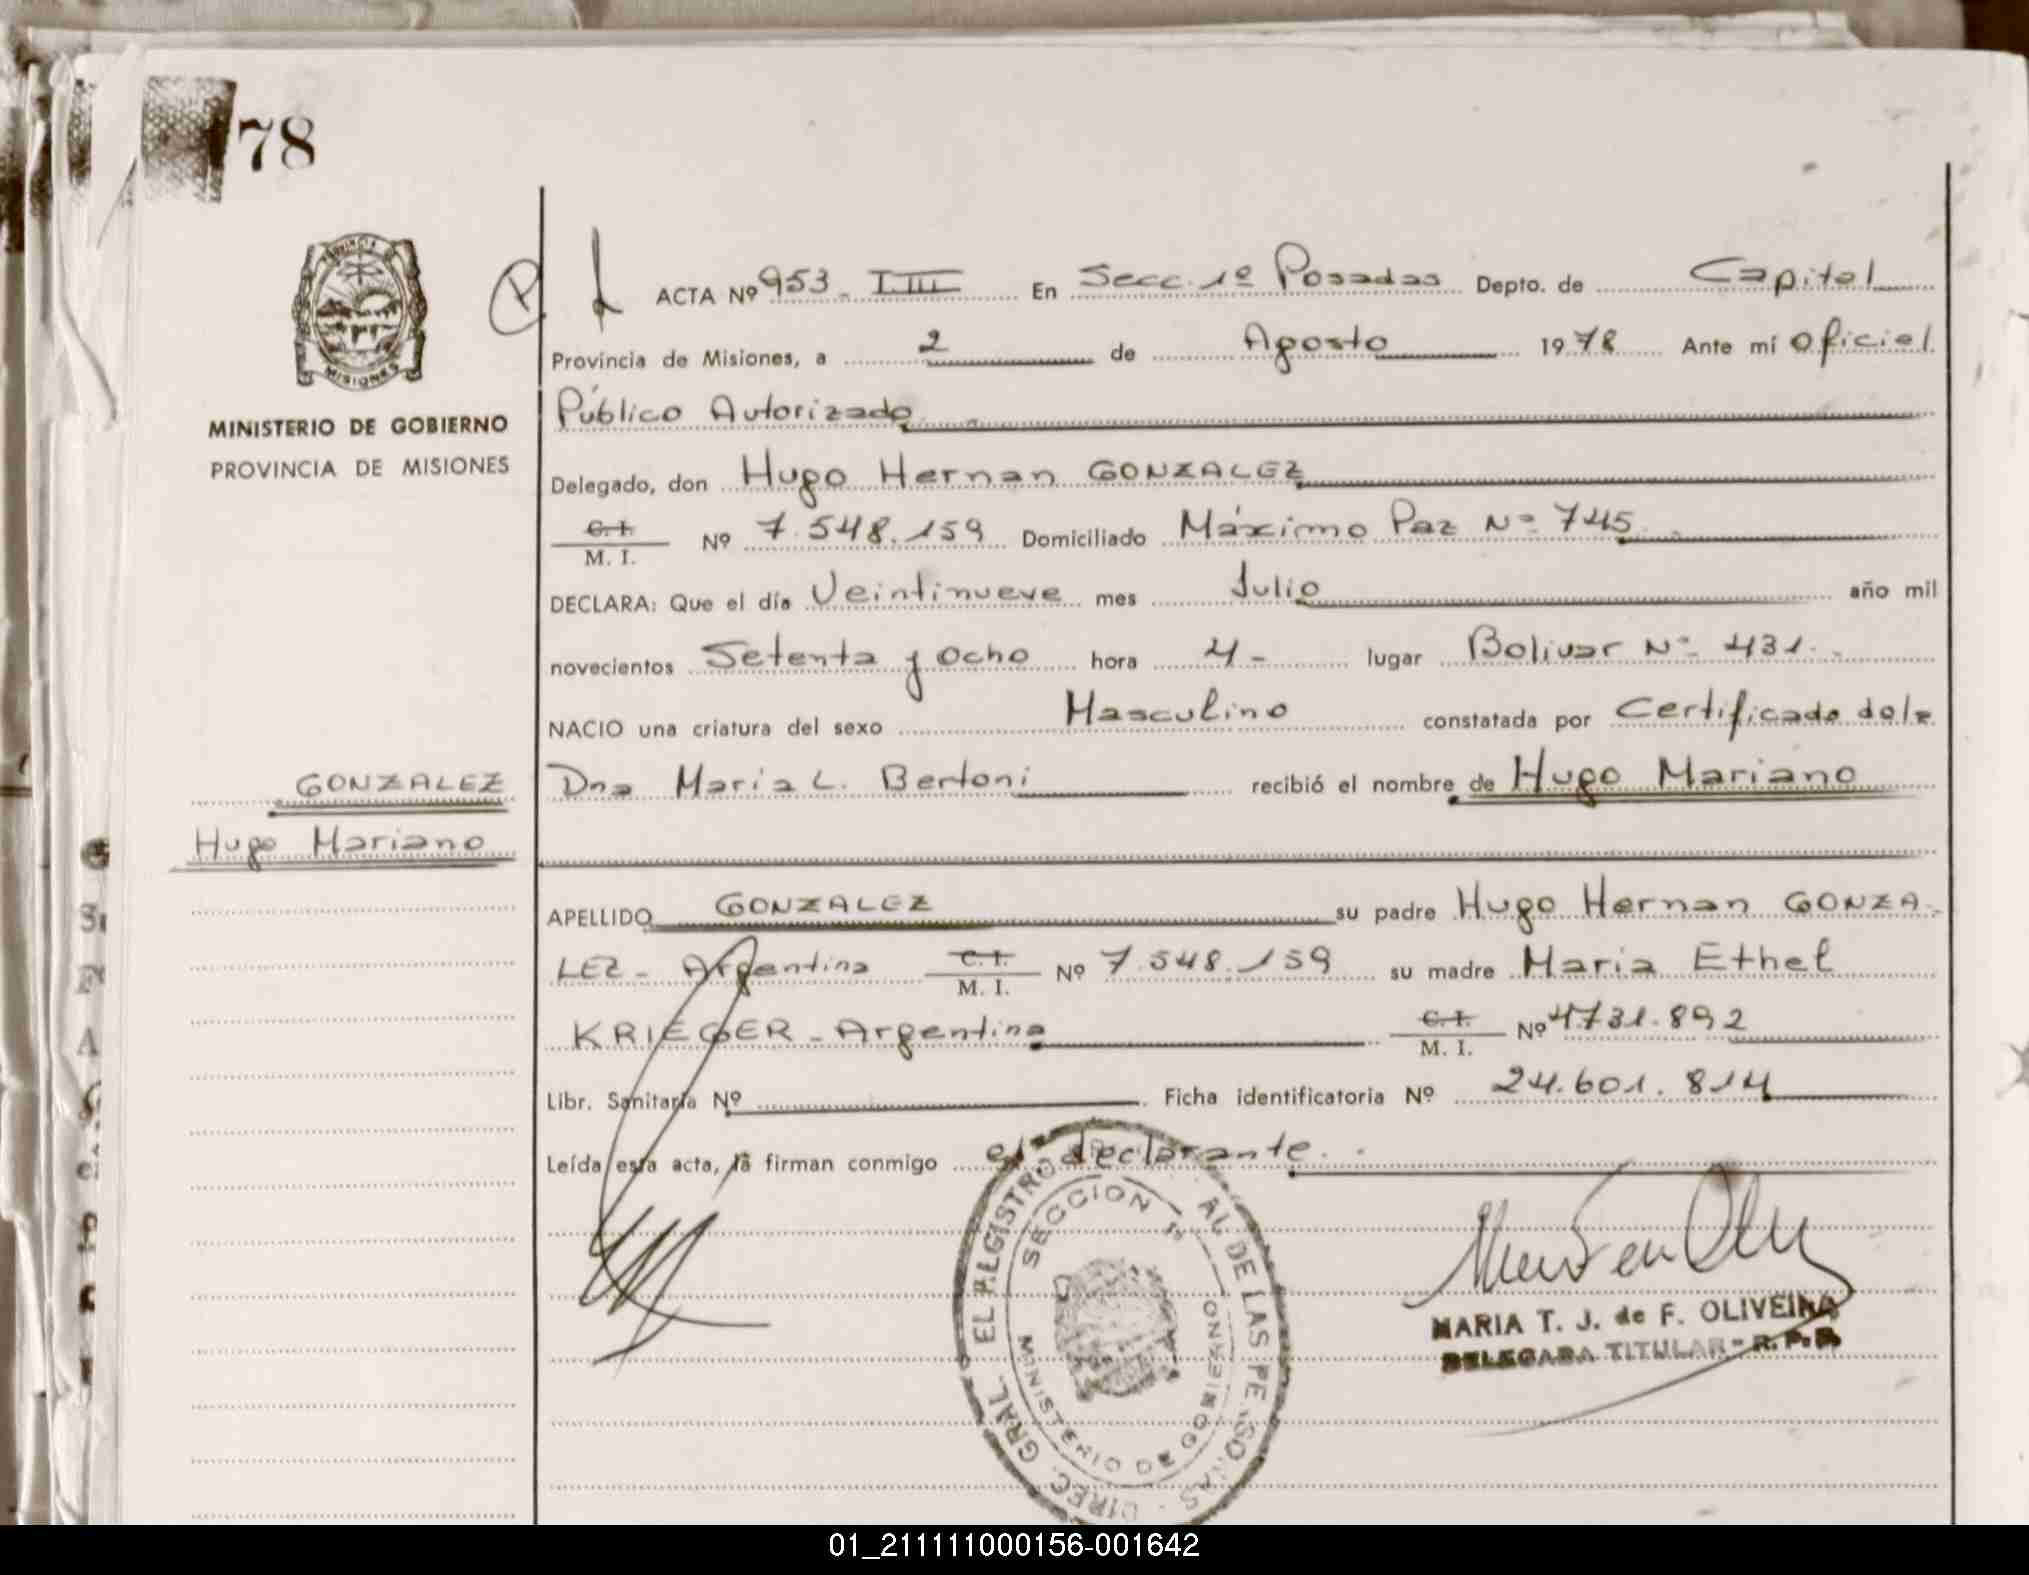 78
PROVINCIA DE
MISIONES
MINISTERIO DE GOBIERNO
PROVINCIA DE MISIONES
P
ACTA Nº 953 - T.III En Secc. 1º Posadas Depto. de Capital
Provincia de Misiones, a 2 de Agosto 1978 Ante mí Oficial
Público Autorizado
Delegado, don Hugo Hernan GONZALEZ
C. I. M. I. Nº 7.548.159 Domiciliado Máximo Paz Nº 745
DECLARA: Que el día Veintinueve mes Julio año mil
novecientos Setenta y Ocho hora 4 - lugar Bolivar Nº 431.-
NACIO una criatura del sexo Masculino constatada por Certificado de la
GONZALEZ
Hugo Mariano
Dra Maria L. Bertoni recibió el nombre de Hugo Mariano
APELLIDO GONZALEZ su padre Hugo Hernan GONZA-
LEZ - Argentina C. I. M. I. Nº 7.548.159 su madre Maria Ethel
KRIEGER - Argentina C. I. M. I. Nº 4731.892
Libr. Sanitaria Nº Ficha identificatoria Nº 24.601.814
Leída esta acta, la firman conmigo el declarante.-
DIREC. GRAL. DEL REGISTRO AL DE LAS PERSONAS
SECCION 1ª
MINISTERIO DE GOBIERNO
MARIA T. J. de F. OLIVEIRA
DELEGADA TITULAR - R.P.P.
01_211111000156-001642